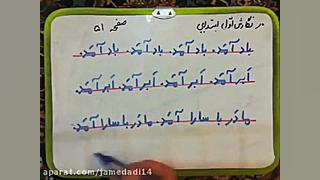 نگارش اول ابتدایی صفحه ۵۱
باد آمد. باد آمد. باد آمد. باد آمد.
ابر آمد. ابر آمد. ابر آمد. ابر آمد.
مادر با سارا آمد. مادر با سارا آمد.
aparat.com/jamedadi14